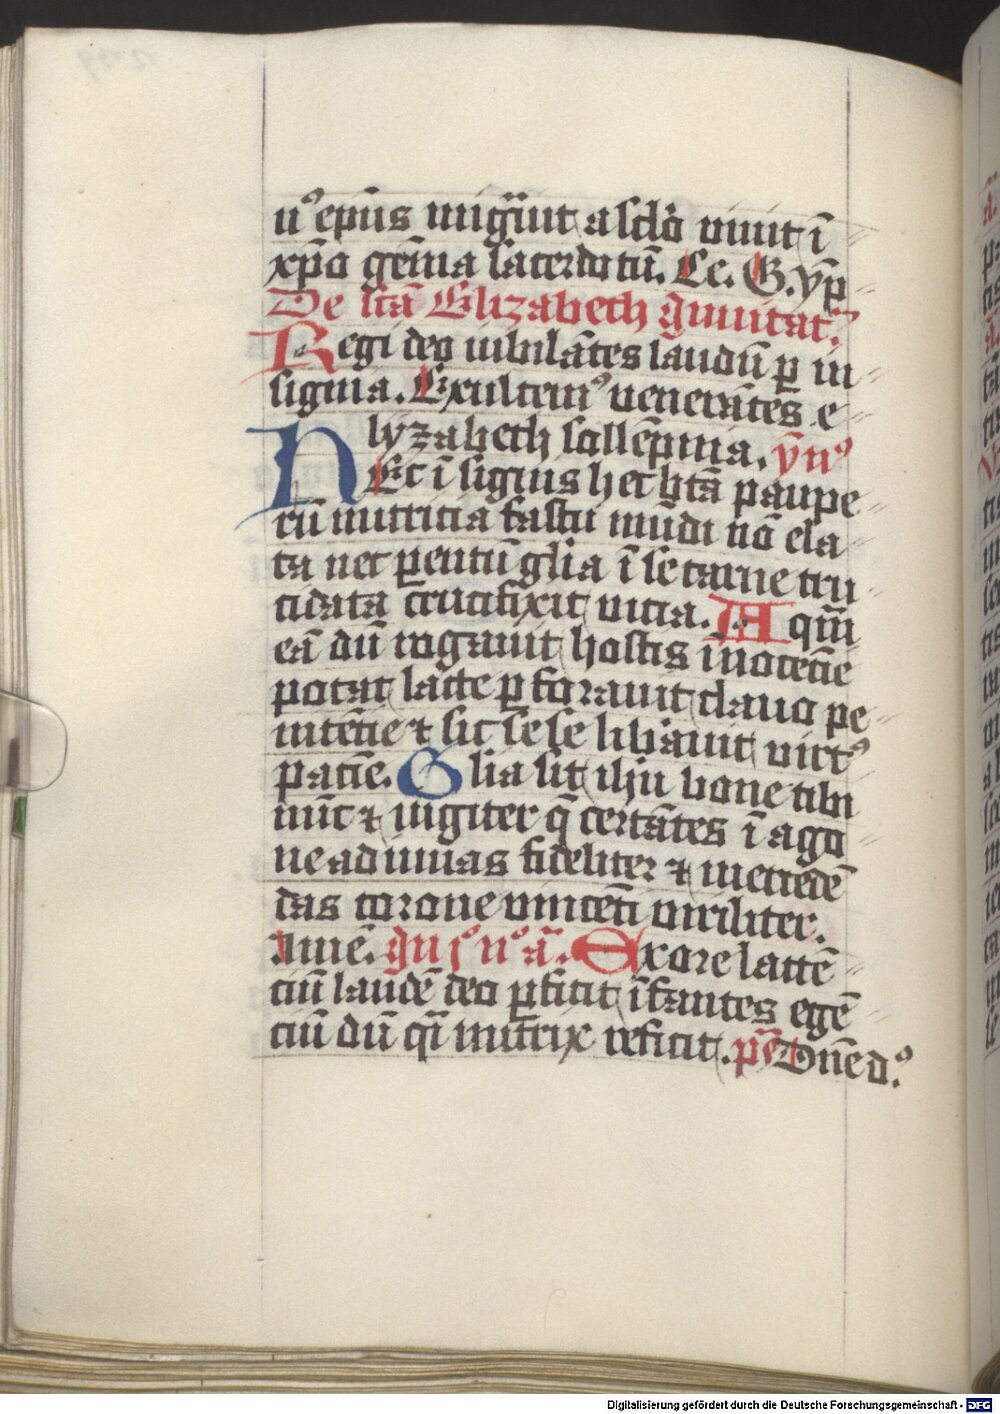 nꝰ epūs migͣuit a sclō viuit ī
xp̄o gēma sacerdotū. Ce. G. yp̄
De sc̄a Elizabeth inuitat.
Regi deo iubilātes laudū ꝑ in
signia. Exultemꝰ venerātes e
lyzabeth sollēpnia. ynꝰ
Hec ī signis hec btā paupe
rū nutricia fastu mūdi nō ela
ta nec ꝑentū glia ī se carne tru
cidata crucifixit vicia. A qͣm
eā dū rogauit hostis inocēcie
potat lacte ꝑforauit clauo pe
nitēcie ⁊ sic se se libͣauit virtꝰ
pacīe. Glia sit ihū bone tibi
nūc ⁊ iugiter q̄ certātes ī ago
ne adiuuas fideliter ⁊ mercedē
das corone vincēti viriliter.
Amē. In pͦ nͦ aͣ. Ex ore lactē
ciū laudē deo ꝑficit īfantes egē
ciū dū qͣi nutrix reficit. pͤ Dn̄e d.ꝰ
Digitalisierung gefördert durch die Deutsche Forschungsgemeinschaft - DFG